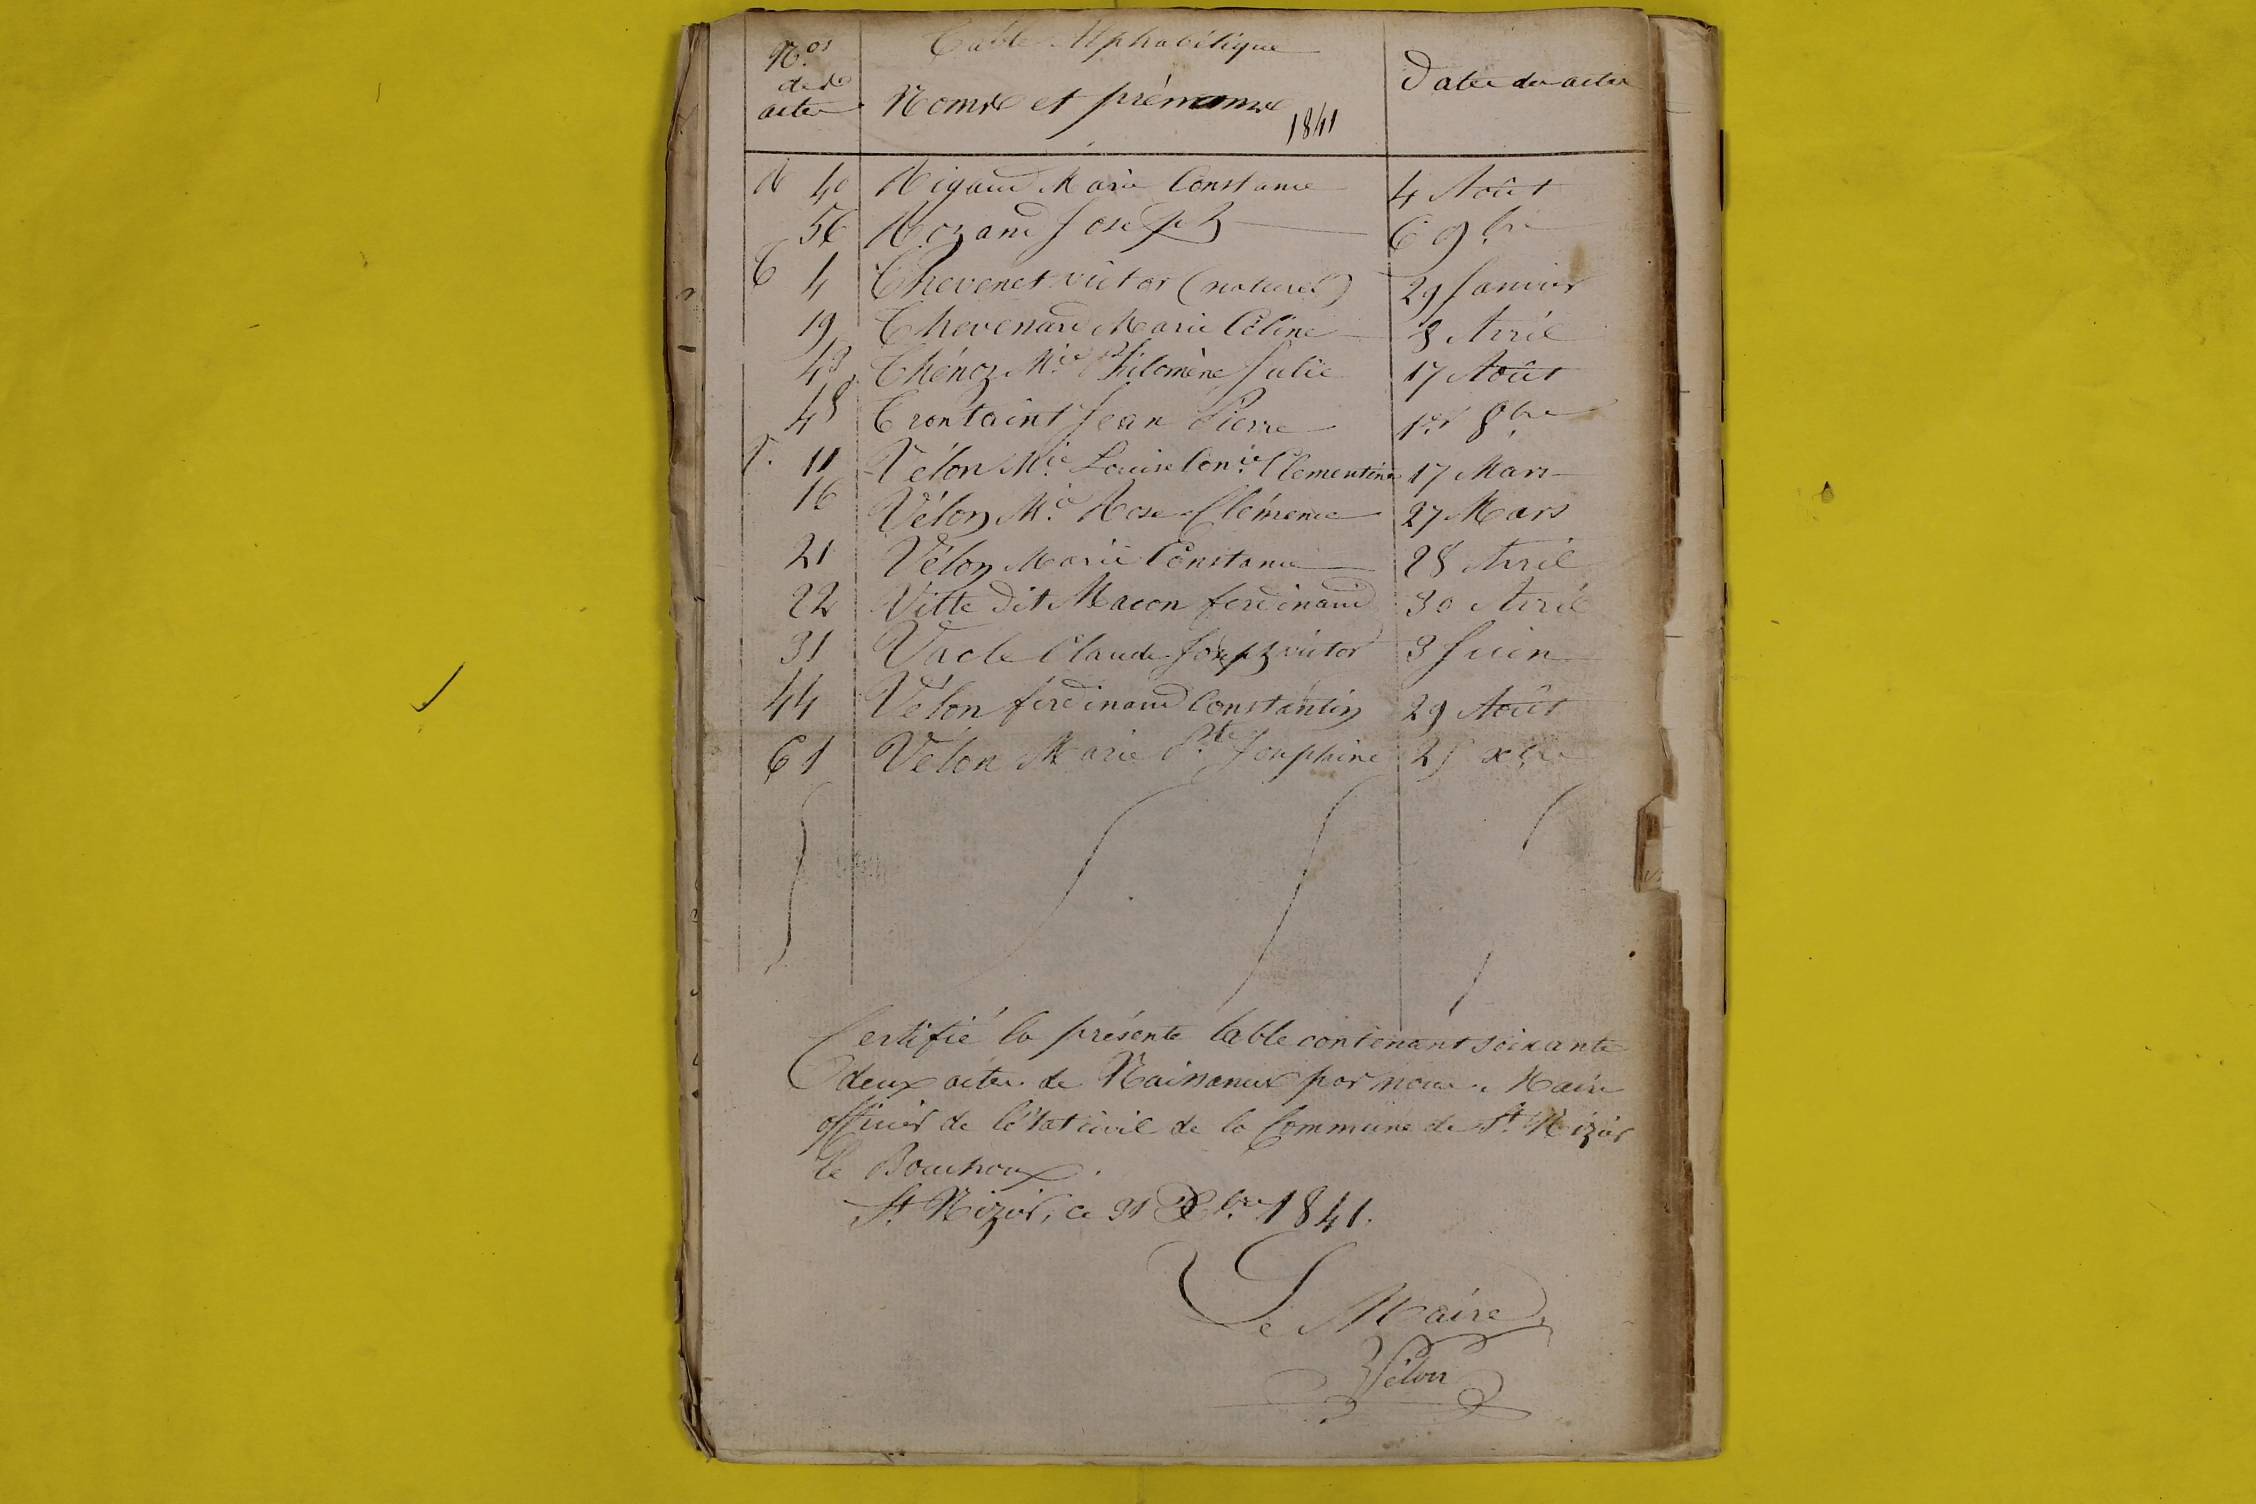 Nos des actes | Table Alphabétique Noms et prénoms 1841 | Dates des actes
R 40 Rigaud Marie Constance 4 Août
56 Rozand Joseph 6 9bre
T 4 Thevenet victor (naturel) 29 Janvier
19 Thevenard Marie Céline 8 Avril
43 Thénoz Mie Philomène Julie 17 Août
48 Trontaint Jean Pierre 1er 8bre
V. 11 Vélon Mie Louise Conie Clementine 17 Mars
16 Vélon Mie Rose Clémence 27 Mars
21 Vélon Marie Constance 28 Avril
22 Vitte dit Macon ferdinand 30 Avril
31 Vacle Claude Joseph victor 3 Juin
44 Vélon ferdinand Constantin 29 Août
61 Vélon Marie Josephine 25 xbre
Certifié la présente table contenant soixante
deux actes de Naissances par nous Maire
officier de l'état civil de la Commune de St Nizier
le Bouchoux.
St Nizier, ce 31 Xbre 1841.
Le Maire
Vélon